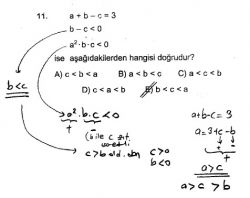 11. a + b − c = 3
b − c < 0
a²·b·c < 0
ise aşağıdakilerden hangisi doğrudur?
A) c < b < a B) a < b < c C) a < c < b
D) c < a < b E) b < c < a
b < c
a²·b·c < 0
+ −
(b ile c zıt
c > b old.
c > 0
b < 0
a+b−c = 3
a = 3+c−b
+ +
a > c
a > c > b